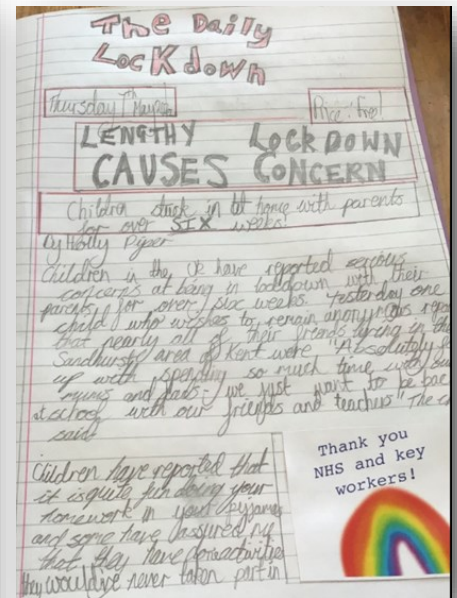 The Daily
Lockdown
Thursday 7th May
Price: Free!
LENGTHY LOCKDOWN
CAUSES CONCERN
Children stuck in at home with parents
for over SIX weeks!
by Holly Piper
Children in the UK have reported serious
concerns at being in lockdown with their
parents for over six weeks. Yesterday one
child who wishes to remain anonymous repo
that nearly all of their friends living in the
Sandhurst area of Kent were "Absolutely f
up with spending so much time with our
mums and dads - we just want to be bac
at school with our friends and teachers" The c
said
Children have reported that
it is quite fun doing your
homework in your pyjama
and some have assured
that they have done activities
they would've never taken part in
Thank you
NHS and key
workers!